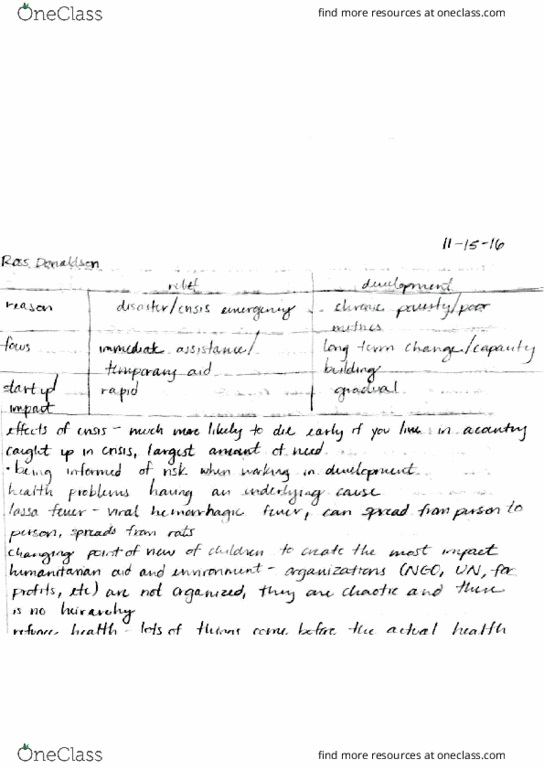 OneClass find more resources at oneclass.com
11-15-16
Ross Donaldson
relief development
reason disaster/crisis emergency chronic poverty/poor
metrics
focus immediate assistance/ long term change/capacity
temporary aid building
startup/ rapid gradual
impact
effects of crisis - much more likely to die early if you live in a country
caught up in crisis, largest amount of need
• being informed of risk when working in development
health problems having an underlying cause
lassa fever - viral hemorrhagic fever, can spread from person to
person, spreads from rats
changing point of view of children to create the most impact
humanitarian aid and environment - organizations (NGO, UN, for
profits, etc) are not organized, they are chaotic and there
is no heirarchy
refugee health - lots of things come before the actual health
OneClass find more resources at oneclass.com